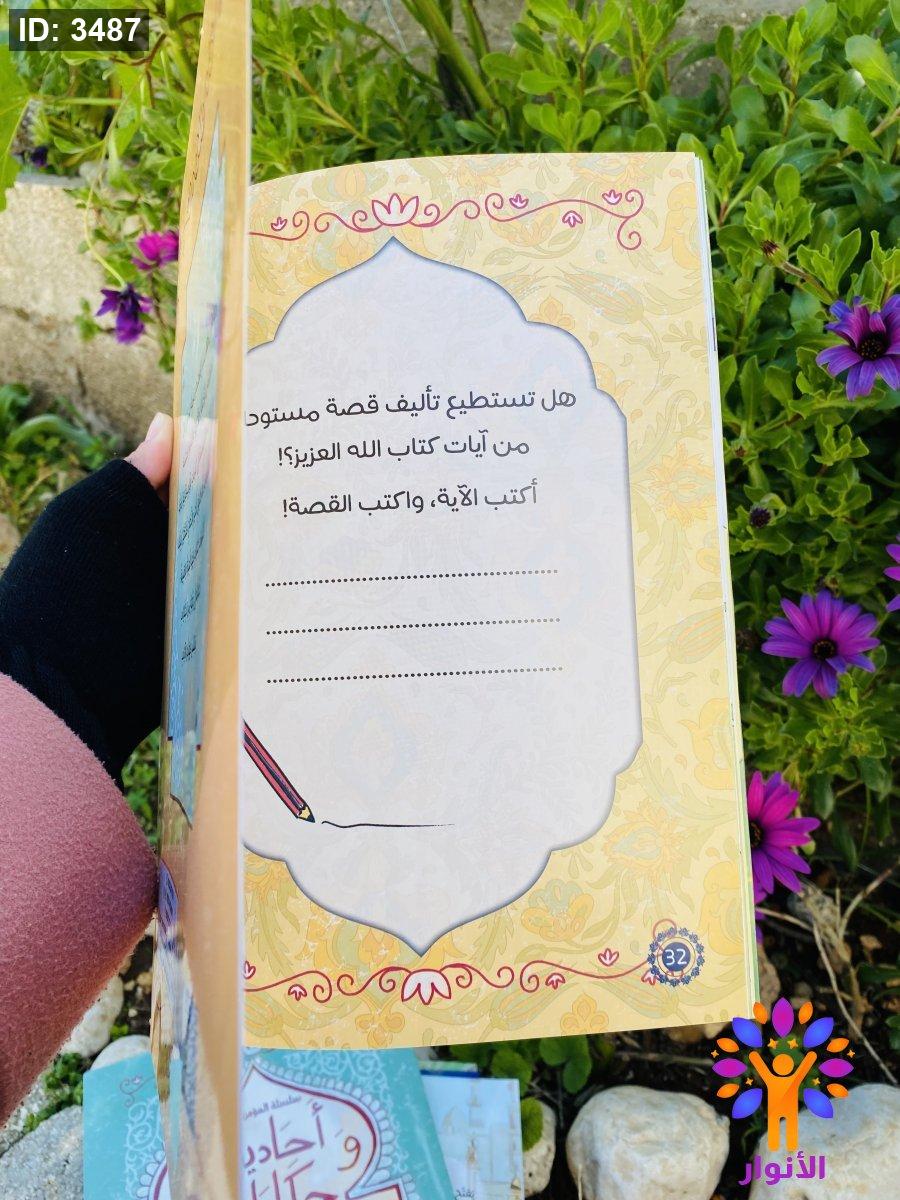 ID: 3487
هل تستطيع تأليف قصة
من آيات كتاب الله العزيز؟!
أكتب الآية، واكتب القصة!
32
سلسلة
الأنوار